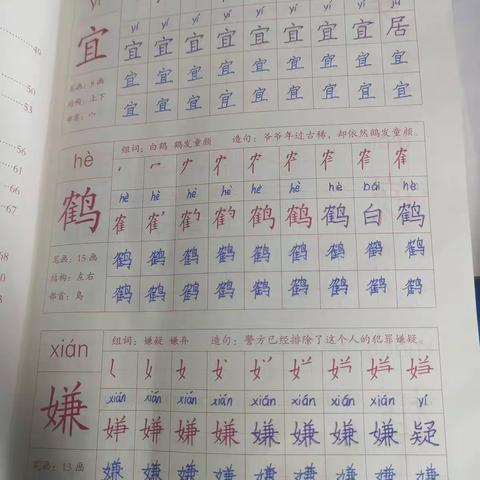 49
50
53
56
61
66
67
yí yí yí yí yí yí yí jū
宜 宜 宜 宜 宜 宜 宜 宜 居
笔画：8 画 宜 宜 宜 宜 宜 宜 宜 宜
结构：上下
部首：宀 宜 宜 宜 宜 宜 宜 宜 宜
hè 组词：白鹤 鹤发童颜 造句：爷爷年过古稀，却依然鹤发童颜。
hè hè hè hè hè hè bái hè
鹤 鹤 鹤 鹤 白 鹤
笔画：15 画 鹤 鹤 鹤 鹤 鹤 鹤 鹤 鹤 鹤
结构：左右
部首：鸟 鹤 鹤 鹤 鹤 鹤 鹤 鹤 鹤 鹤
xián 组词：嫌疑 嫌弃 造句：警方已经排除了这个人的犯罪嫌疑。
xián xián xián xián xián xián xián xián yí
嫌 嫌 嫌 嫌 嫌 疑
笔画：13 画 嫌 嫌 嫌 嫌 嫌 嫌 嫌 嫌 嫌